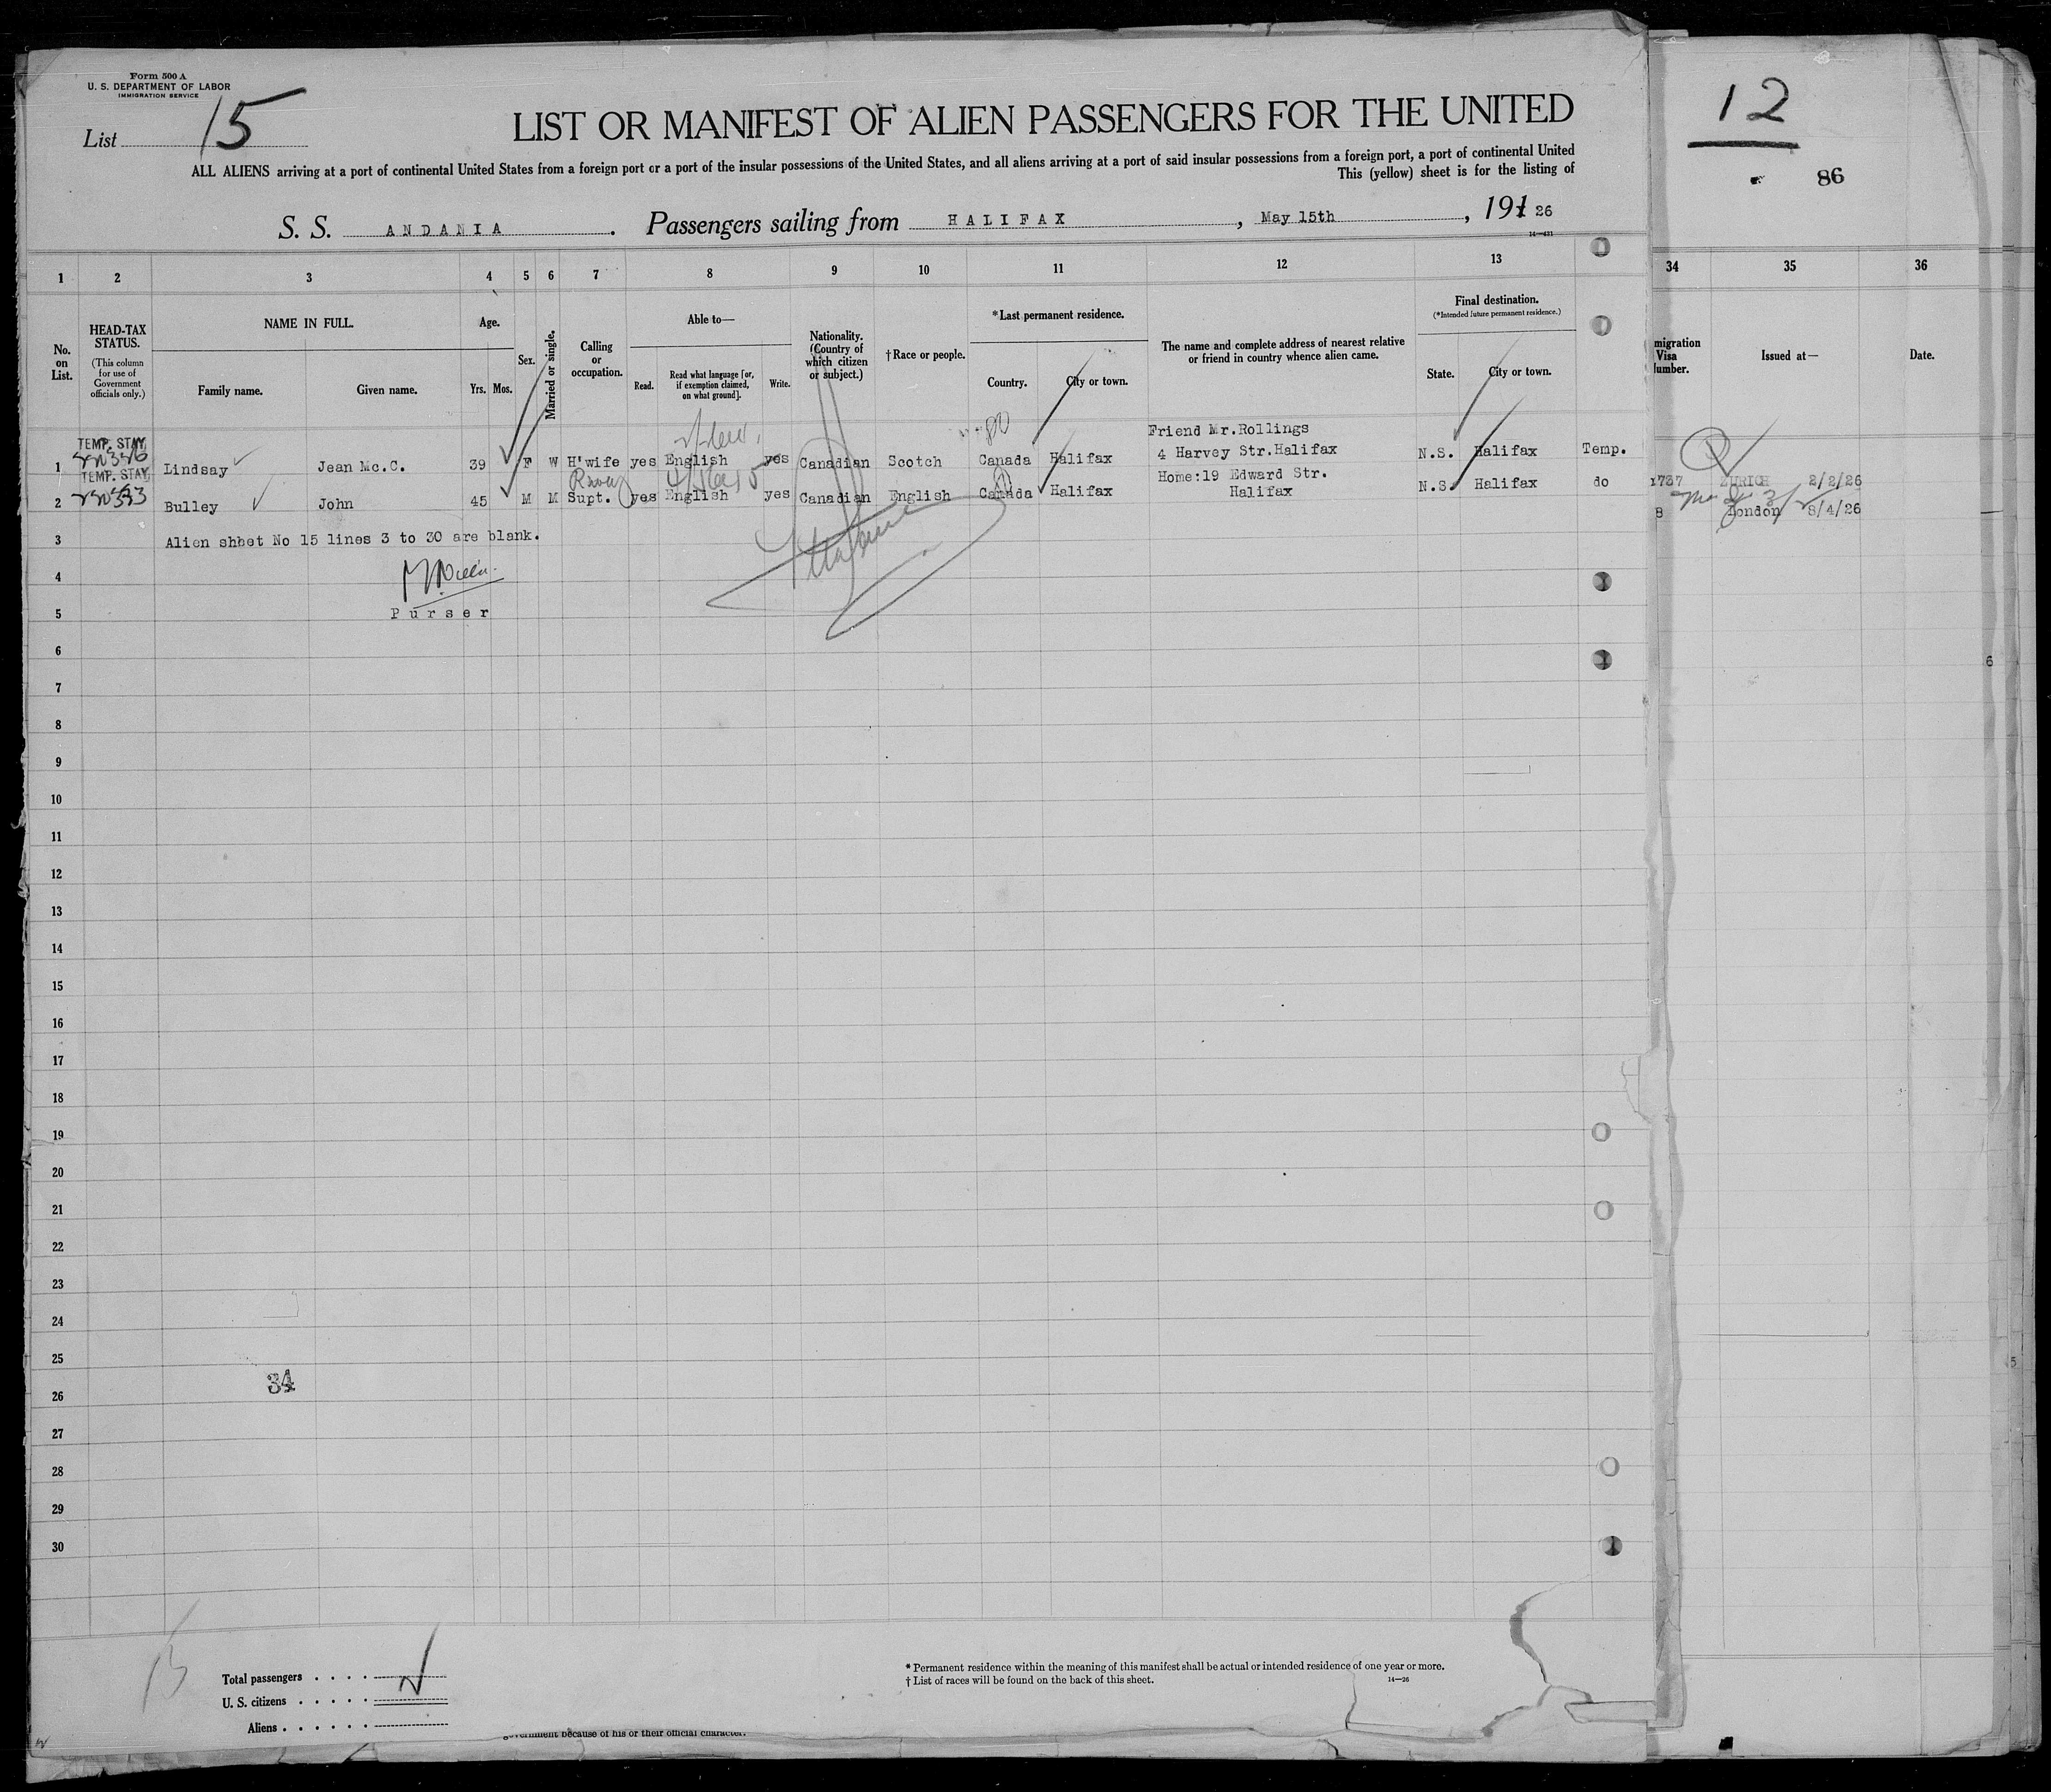 Form 500 A
U. S. DEPARTMENT OF LABOR
IMMIGRATION SERVICE
List 15
LIST OR MANIFEST OF ALIEN PASSENGERS FOR THE UNITED
ALL ALIENS arriving at a port of continental United States from a foreign port or a port of the insular possessions of the United States, and all aliens arriving at a port of said insular possessions from a foreign port, a port of continental United
This (yellow) sheet is for the listing of
S. S. ANDANIA. Passengers sailing from HALIFAX, May 15th, 191 26
14—421
12
86
1 2 3 4 5 6 7 8 9 10 11 12 13 34 35 36
No. on List.
HEAD-TAX STATUS.
(This column for use of Government officials only.)
NAME IN FULL.
Family name. Given name.
Age.
Yrs. Mos.
Sex.
Married or single.
Calling or occupation.
Able to—
Read. Read what language [or, if exemption claimed, on what ground]. Write.
Nationality. (Country of which citizen or subject.)
†Race or people.
*Last permanent residence.
Country. City or town.
The name and complete address of nearest relative or friend in country whence alien came.
Final destination.
(*Intended future permanent residence.)
State. City or town.
migration Visa umber.
Issued at—
Date.
Friend Mr.Rollings
TEMP. STAY
1 Lindsay Jean Mc.C. 39 F W H'wife yes English yes Canadian Scotch Canada Halifax 4 Harvey Str.Halifax N.S. Halifax Temp.
TEMP. STAY
Home:19 Edward Str.
2 Bulley John 45 M M Supt. yes English yes Canadian English Canada Halifax Halifax N.S. Halifax do
1787 ZURICH 2/2/26
8 London 8/4/26
3 Alien shhet No 15 lines 3 to 30 are blank.
4
5 Purser
6
7
8
9
10
11
12
13
14
15
16
17
18
19
20
21
22
23
24
25
34
26
27
28
29
30
Total passengers
U. S. citizens
Aliens
* Permanent residence within the meaning of this manifest shall be actual or intended residence of one year or more.
† List of races will be found on the back of this sheet.
14—26
government because of his or their official character.